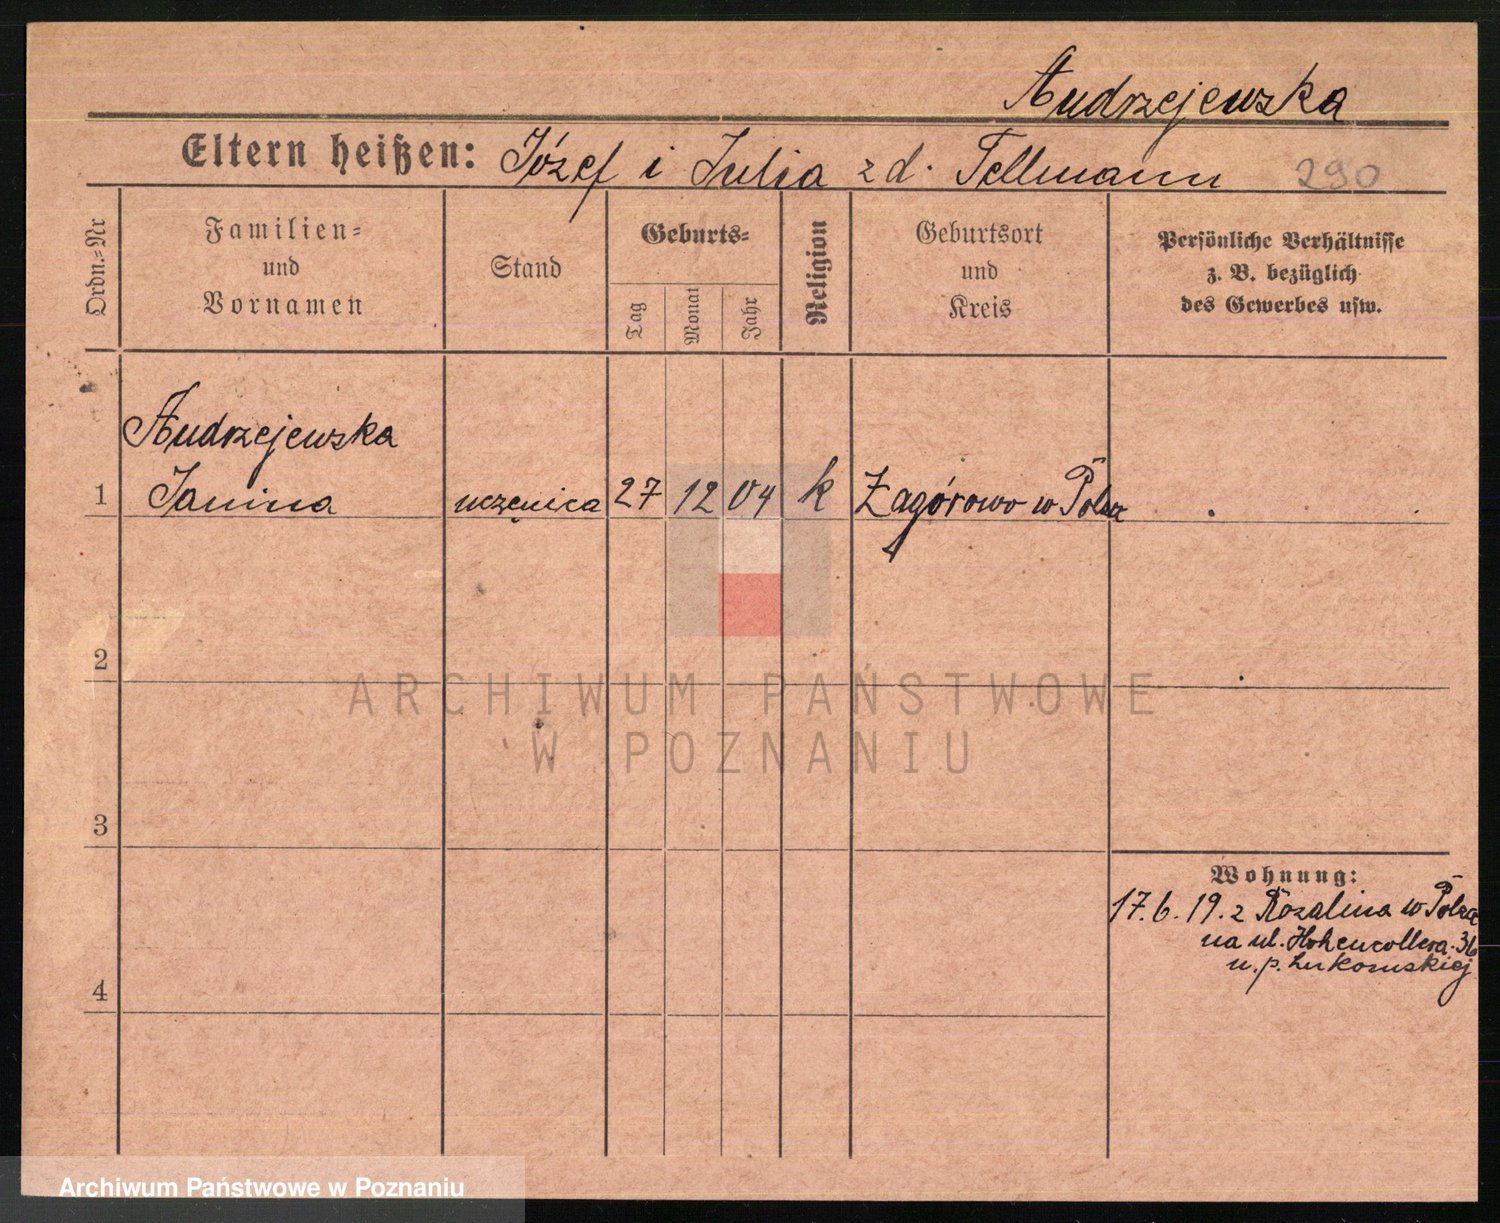 Andrzejewska
Eltern heißen: Józef i Julia z d. Tellmann 290
Ordn.-Nr
Familien-
und
Vornamen
Stand
Geburts-
Tag
Monat
Jahr
Religion
Geburtsort
und
Kreis
Persönliche Verhältnisse
z. B. bezüglich
des Gewerbes usw.
Andrzejewska
1 Janina uczenica 27 12 04 k Zagórowo w Polsce
2
ARCHIWUM PAŃSTWOWE
W POZNANIU
3
Wohnung:
17.6.19. z Rozalina w Polsce
na ul. 36
u. p.
4
Archiwum Państwowe w Poznaniu